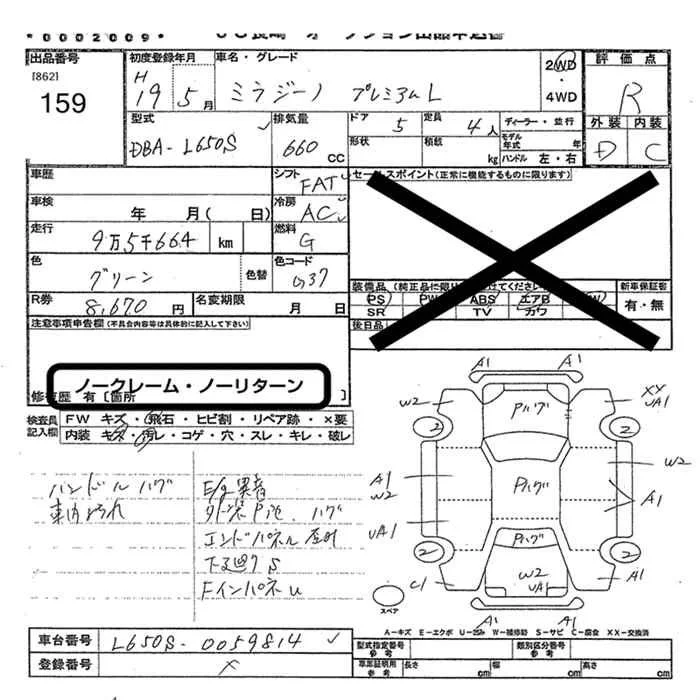 *0002009*
JU長崎 オークション出品申込書
出品番号
[862]
159
初度登録年月
H 19 5月
車名・グレード
ミラジーノ プレミアムL
2WD
・
4WD
評価点
R
外装 内装
D C
型式
DBA-L650S
排気量
660 cc
ドア 5
定員 4人
形状
積載 kg
ディーラー・並行
モデル年式 年
ハンドル 左・右
車歴
シフト FAT
セールスポイント(正常に機能するものに限ります)
車検
年 月( 日)
冷房 AC
走行
9万5千664 km
燃料 G
色
グリーン
色替
色コード G37
装備品
PS PW ABS エアB
SR TV カワ
新車保証書
有・無
後日品
R券
8,670円
名変期限
月 日
注意事項申告欄(不具合内容等は具体的に記入して下さい)
ノークレーム・ノーリターン
修復歴 有[箇所 ]
検査員記入欄
FW キズ・飛石・ヒビ割・リペア跡・×要
内装 キズ・汚レ・コゲ・穴・スレ・キレ・破レ
ハンドルハゲ
車内よごれ
E/g異音
外装P他、ハゲ
エンドパネル
下廻りS
FインパネU
A1 A1
W2
Pハゲ
XY
UA1
2 2
A1
W2
Pハゲ
W2
A1
UA1
Pハゲ
2 2
C1
W2
UA1
A1
スペア
A1 A1
A-キズ E-エクボ U-凹み W-補修跡 S-サビ C-腐食 XX-交換済
車台番号
L650S-0059814
登録番号
×
型式指定番号
参考
類別区分番号
参考
車庫証明用
参考
長さ cm
幅 cm
高さ cm